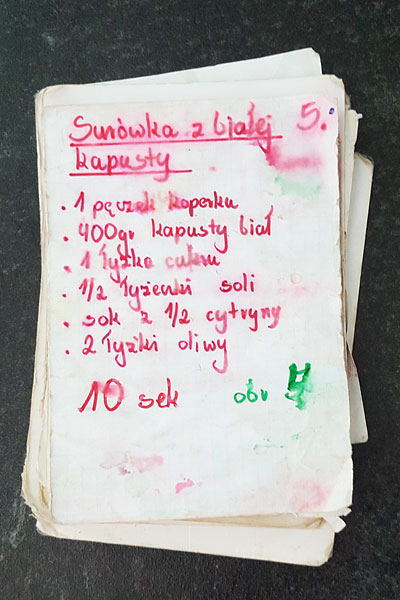 Surówka z białej 5.
kapusty
. 1 pęczek koperku
. 400gr kapusty biał
. 1 łyżka cukru
. 1/2 łyżeczki soli
. sok z 1/2 cytryny
. 2 łyżki oliwy
10 sek obr 4